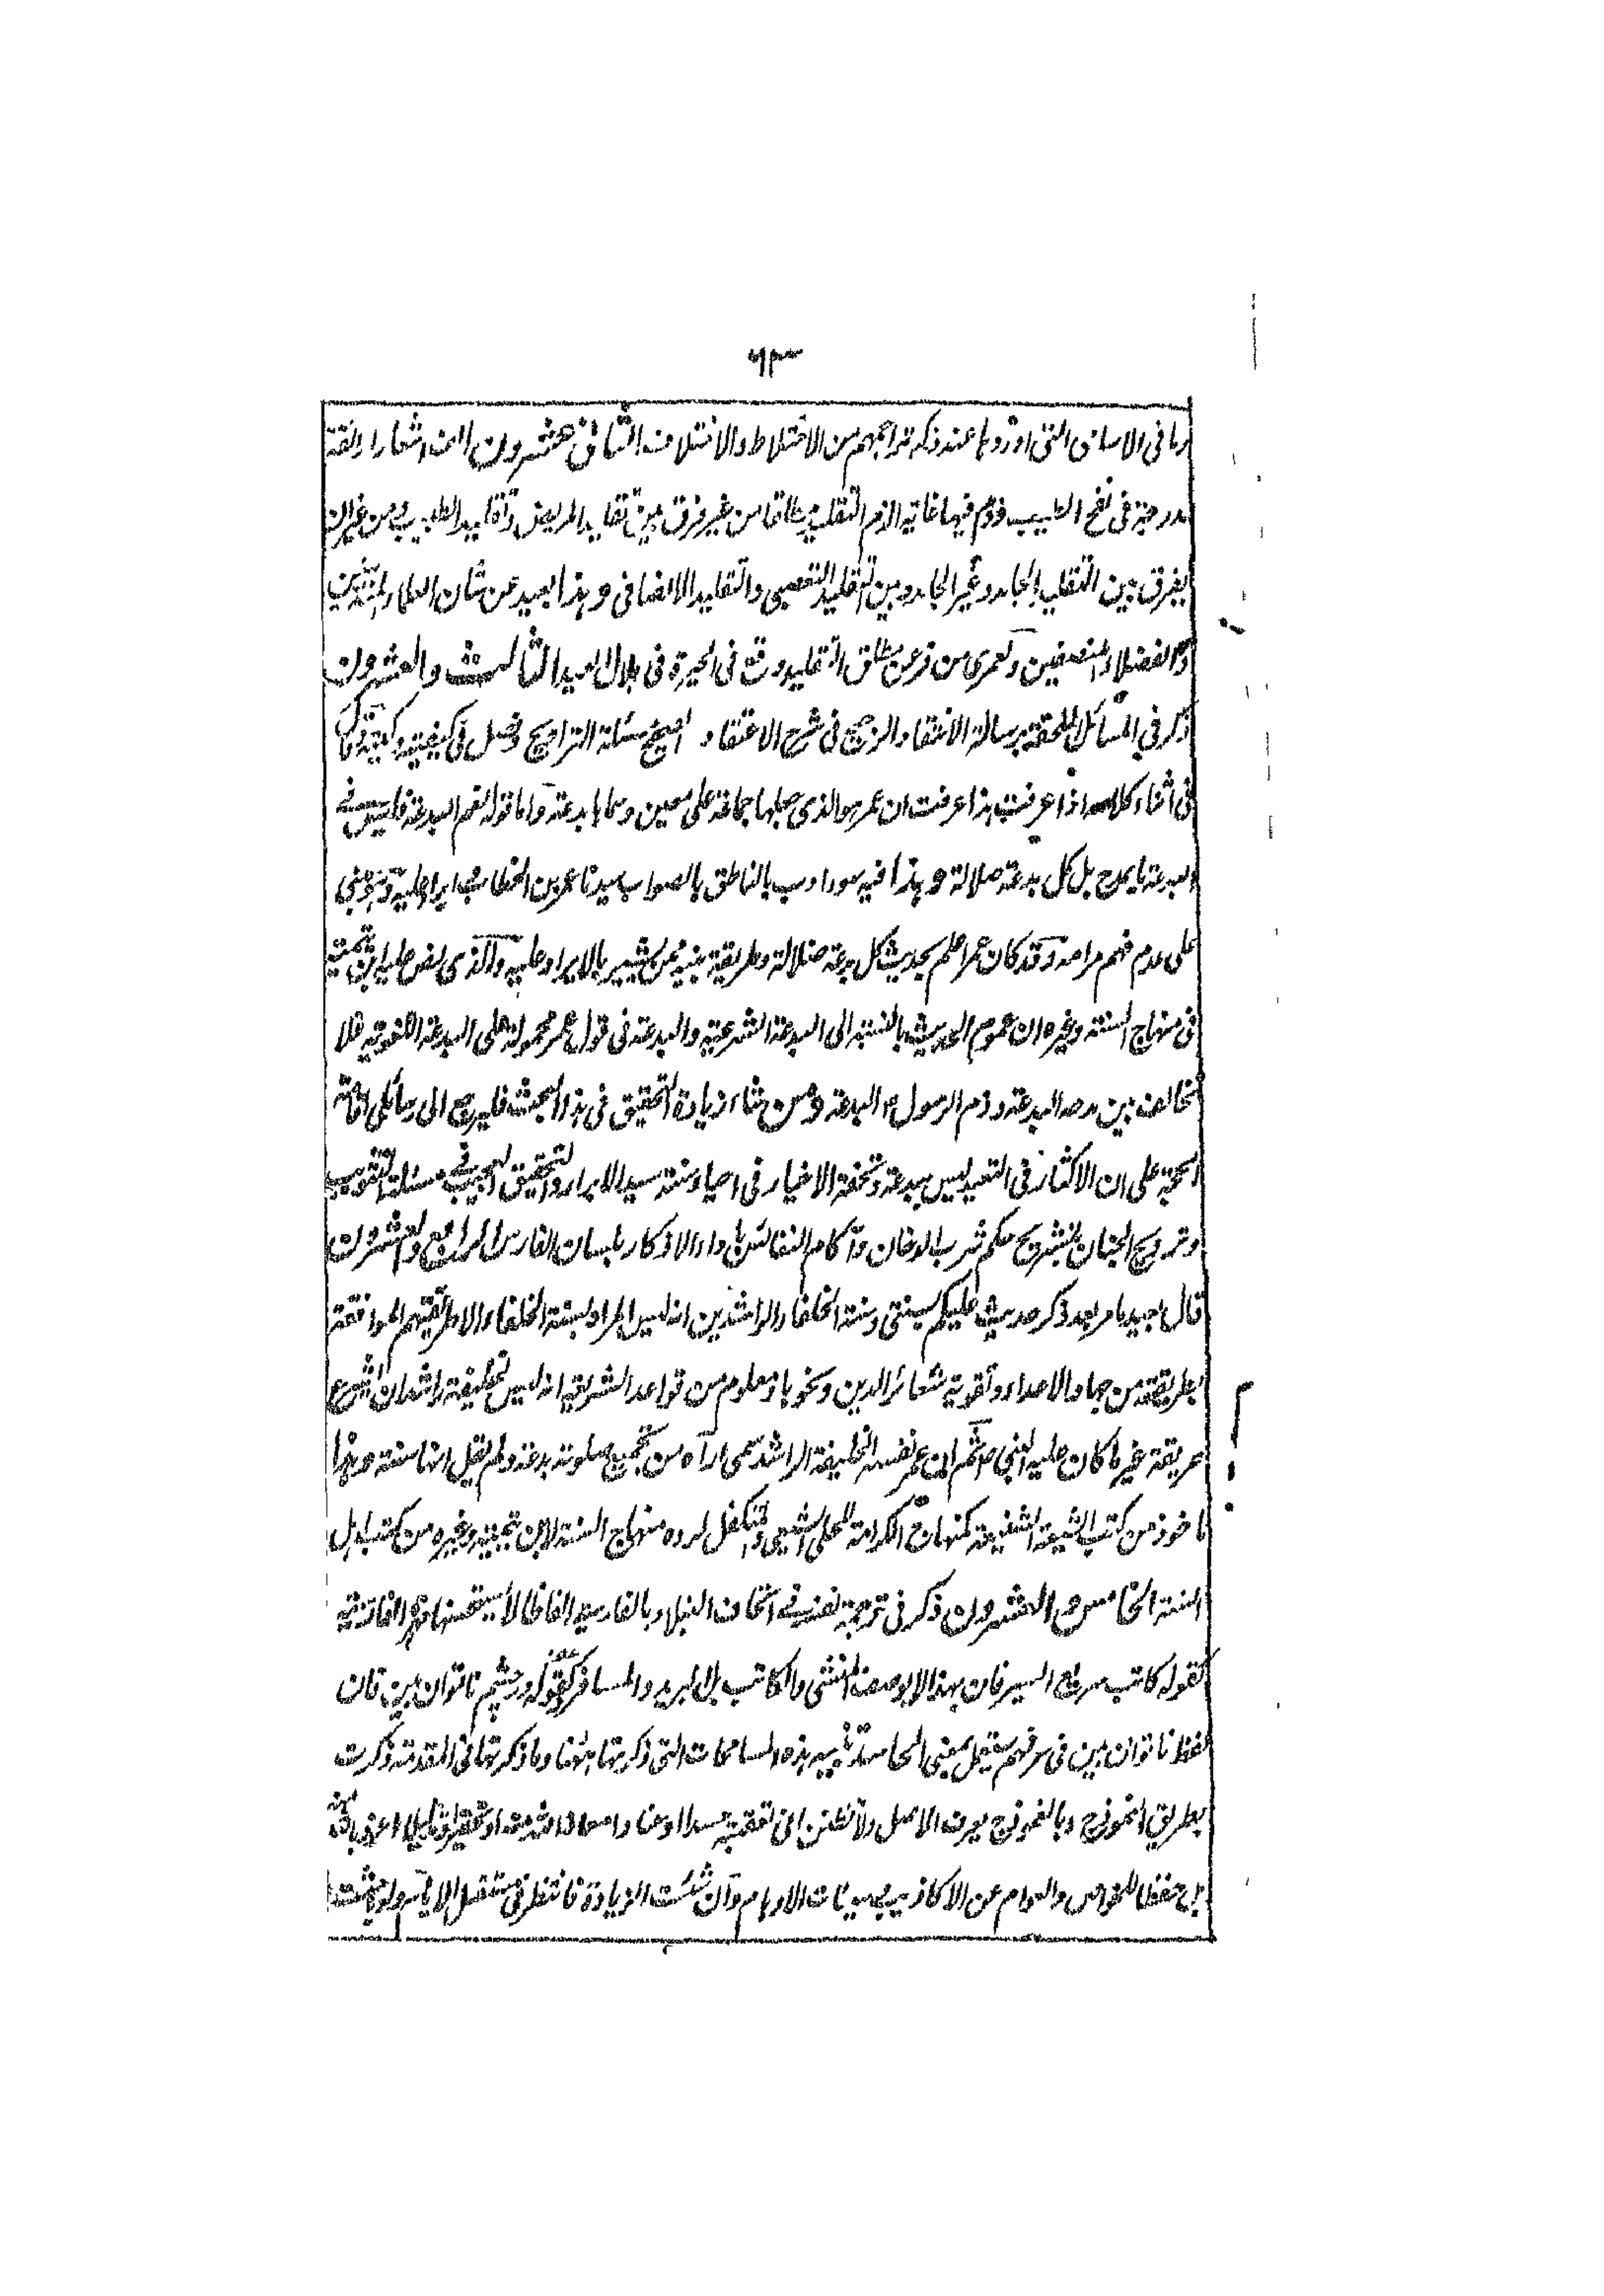 ٦٣
وما في الاسامي التي اوردها عند ذكر تراجمهم من الاختلاط والاختلاف الثاني والعشرون الف اشعارا رائقة
مدرجة في نفح الطيب وذم فيها غاية الذم التقليد مطلقا من غير فرق بين تقليد المريض وتقليد الطبيب ومن غير ان
يفرق بين التقليد الجامد وغير الجامد وبين التقليد التعصبي والتقليد الانصافي وهذا بعيد عن شان العلماء المتدينين
والفضلاء المنصفين ولعمري من فر عن مطلق التقليد وقع في الحيرة في بلال البعيد الثالث والعشرون
ذكر في المسائل الملحقة برسالة الانتقاد الرجيح في شرح الاعتقاد الصحيح مسئلة التراويح وفصل في كيفيته وكميته وقال
في اثناء كلامه اذا عرفت هذا عرفت ان عمر هو الذي جعلها جماعة على معين وسماها بدعة واما قوله نعم البدعة فليس في
البدعة ما يمدح بل كل بدعة ضلالة وهذا فيه سوء ادب بالناطق بالصواب سيدنا عمر بن الخطاب وايراد عليه وهو مبني
على عدم فهم مرامه وقد كان عمر اعلم بحديث كل بدعة ضلالة وطريقة نبيه ممن يشير بالايراد عليه والذي نص عليه ابن تيمية
في منهاج السنة وغيره ان عموم الحديث بالنسبة الى البدعة الشرعية والبدعة في قول عمر محمولة على البدعة اللغوية فلا
تخالف بين مدحه البدعة وذم الرسول ص البدعة ومن شاء زيادة التحقيق في هذا البحث فليرجع الى رسائلي اقامة
الحجة على ان الاكثار في التعبد ليس ببدعة وتحفة الاخيار في احياء سنة سيد الابرار والتحقيق العجيب في مسئلة التثويب
وترويح الجنان بتشريح حكم شرب الدخان وآكام النفائس باداء الاذكار بلسان الفارس الرابع والعشرون
قال بعيد ما مر بعد ذكر حديث عليكم بسنتي وسنة الخلفاء الراشدين انه ليس المراد بسنة الخلفاء الا طريقتهم الموافقة
لطريقته من جهاد الاعداء وتقوية شعائر الدين ونحوها ومعلوم من قواعد الشريعة انه ليس لخليفة راشد ان يشرع
طريقة غير ما كان عليه النبي ص ثم ان عمر نفسه الخليفة الراشد سمى ما رآه من تجميع صلوته بدعة ولم يقل انها سنة وهذا
ماخوذ من كتب الشيعة الشنيعة كمنهاج الكرامة للحلي الشيعي والمتكفل لرده منهاج السنة لابن تيمية وغيره من كتب اهل
السنة الخامس والعشرون ذكر في ترجمة نفسه في اتحاف النبلاء بالفارسية الفاظا لا يستحسنها مهرة الفارسية
كقوله كاتب سريع السير فان بهذا لا يوصف المنشي والكاتب بل البريد والمسافر وكقوله ورچشم ناتوان بين فان
لفظ ناتوان بين في عرفهم يستعمل بمعنى الحاسد تنبيه هذه المسامحات التي ذكرتها ههنا وما ذكرتها في المقدمة ذكرت
بطريق انموذج وبالنموذج يعرف الاصل ولا تظنن اني تعقبته حسدا او عنادا معاذ الله منه
بل حفظا للخواص والعوام عن الاكاذيب وصيانة الاوهام وان شئت الزيادة فانتظر في مستقبل الايام ولو شئت